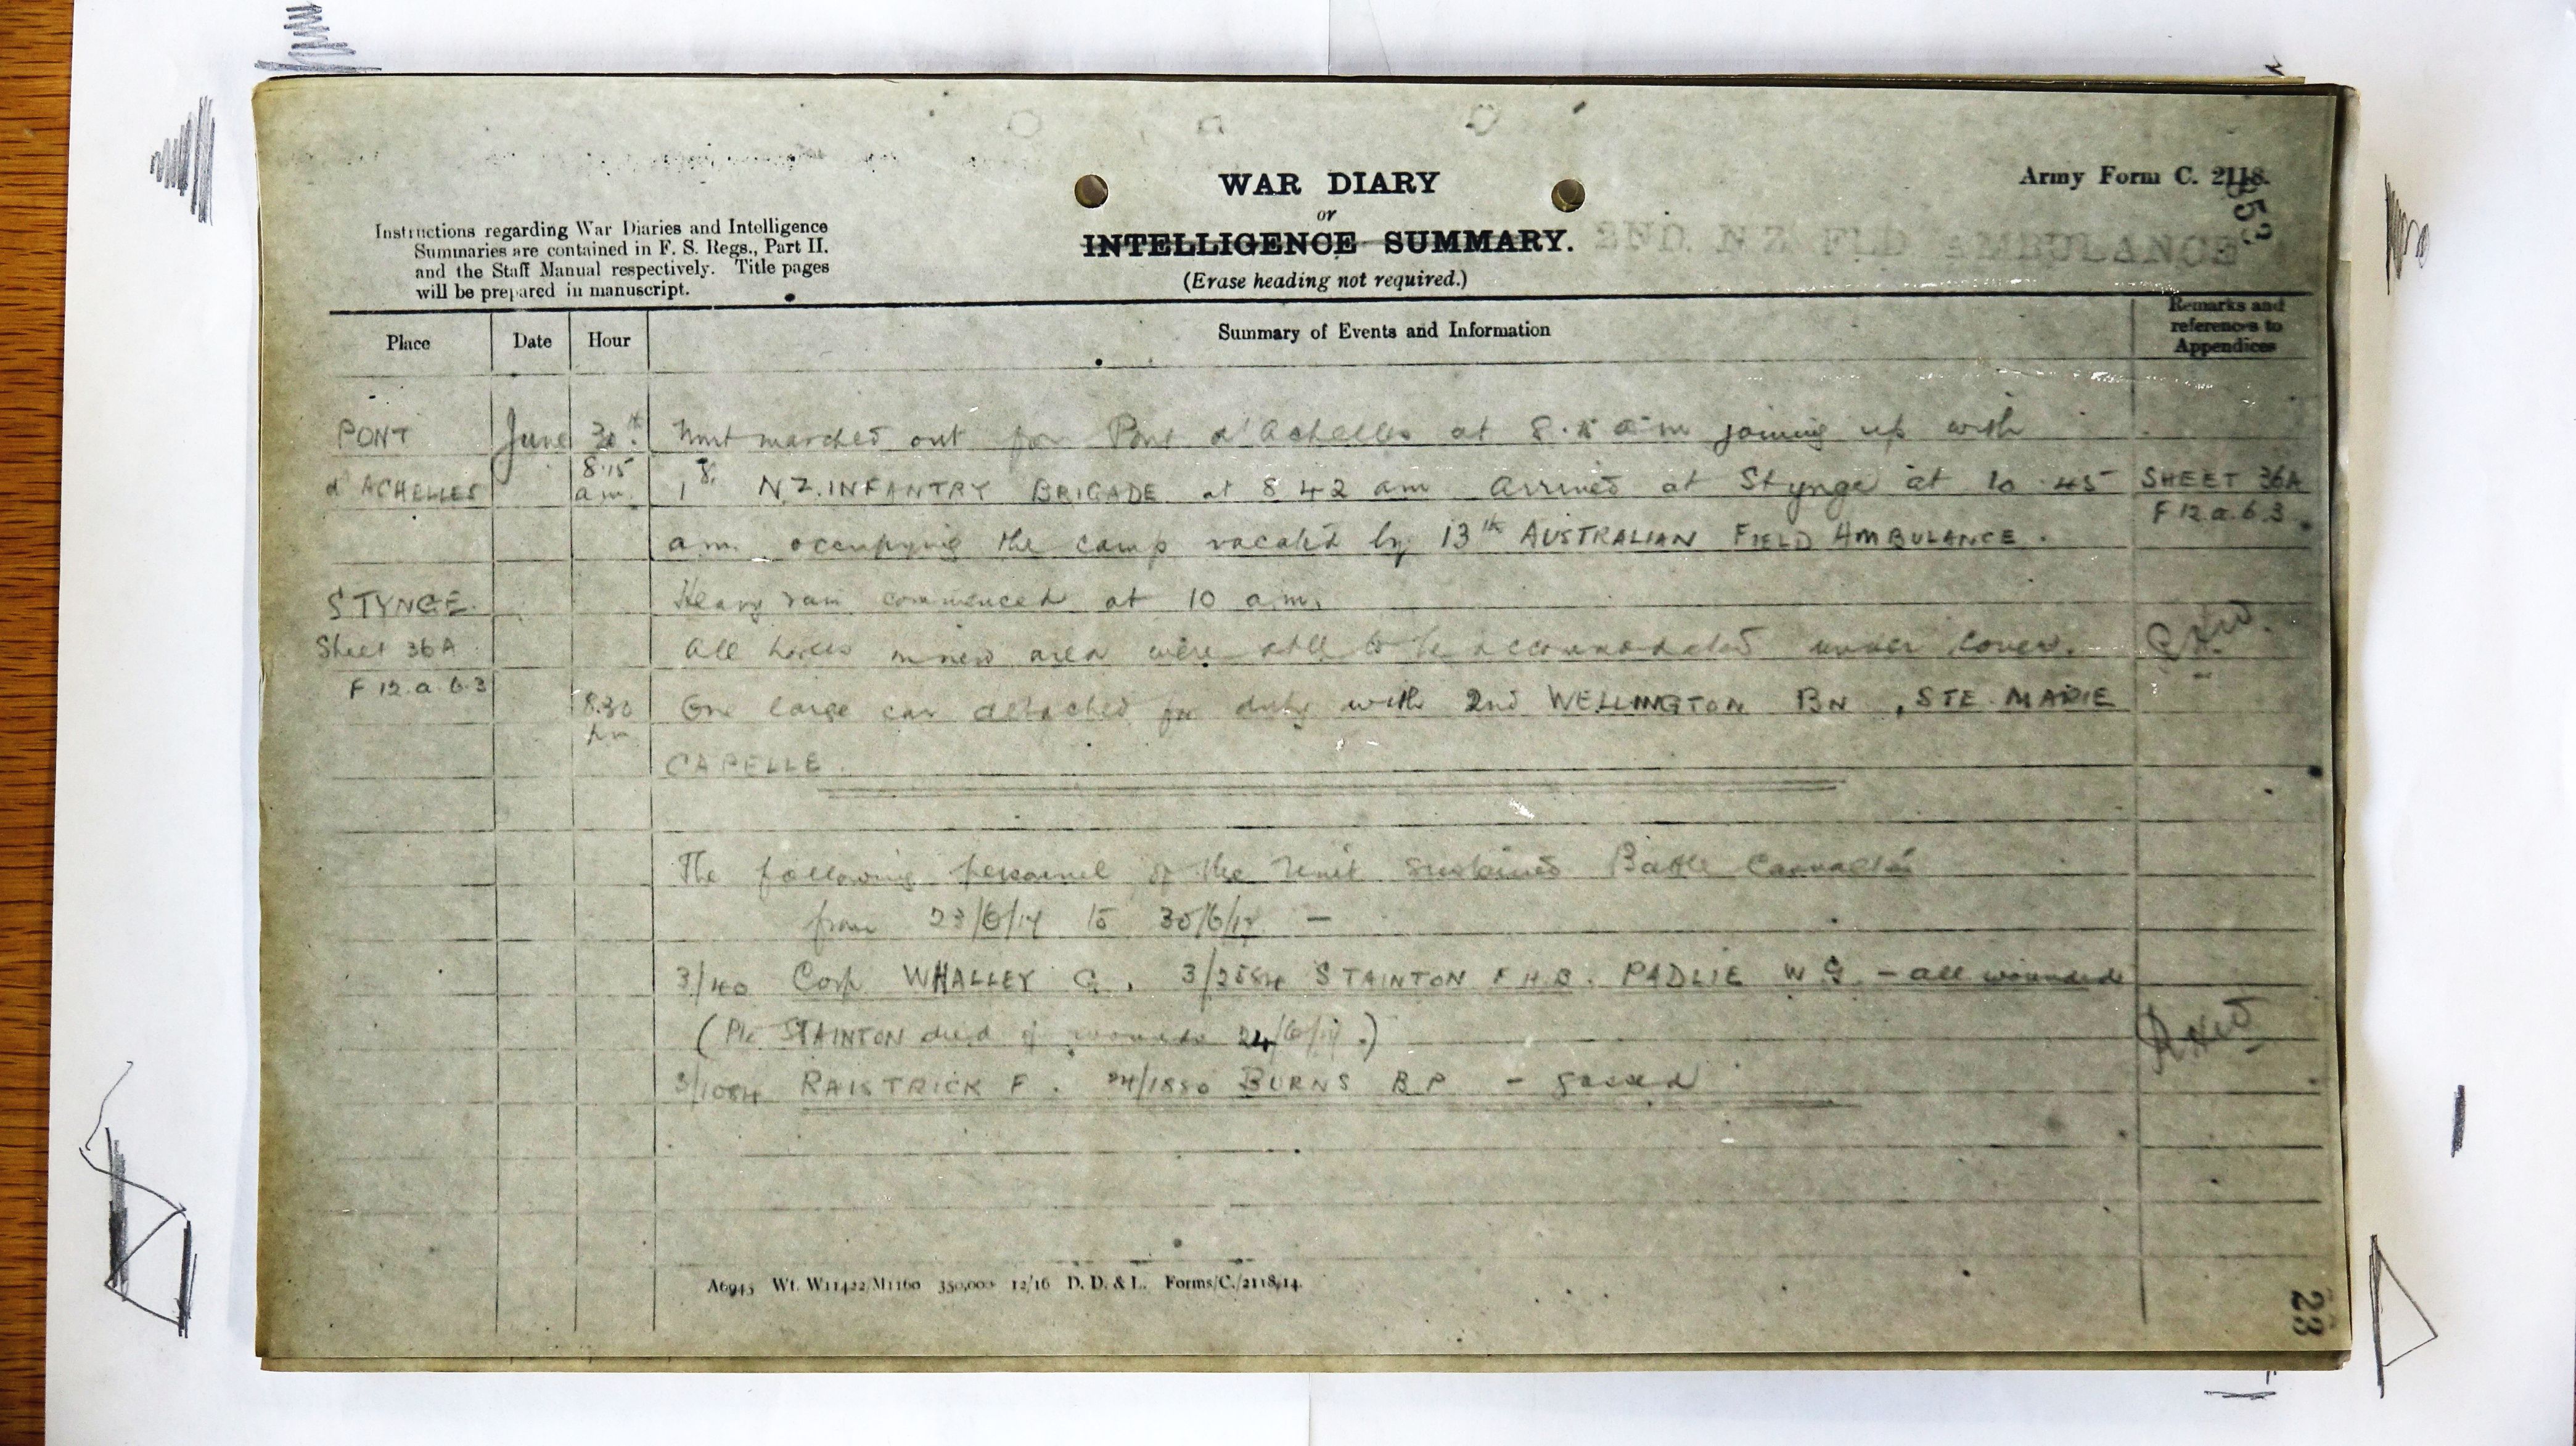 Army Form C. 2118.
353
WAR DIARY
or
INTELLIGENCE SUMMARY.
(Erase heading not required.)
2ND. N.Z. FLD. AMBULANCE
Instructions regarding War Diaries and Intelligence
Summaries are contained in F. S. Regs., Part II.
and the Staff Manual respectively. Title pages
will be prepared in manuscript.
Place Date Hour Summary of Events and Information Remarks and references to Appendices
PONT June 30th Unit marched out for Pont d'Achelles at 8.15 am joining up with
d'ACHELLES 8.15 am. 1st N.Z. INFANTRY BRIGADE at 8 42 am Arrived at Stynge at 10.45 SHEET 36A
am. occupying the camp vacated by 13th AUSTRALIAN FIELD AMBULANCE. F 12.a.6.3.
STYNGE. Heavy rain commenced at 10 a.m.
Sheet 36A All in new area were able to be accommodated under cover.
F 12.a.6.3 8.30 pm One large car detached for duty with 2nd WELLINGTON BN, STE. MARIE
CAPELLE.
The following personnel of the Unit sustained Battle Casualties
from 23/6/17 to 30/6/17 —
3/40 Corp WHALLEY G. 3/2584 STAINTON F.H.B. PADLIE W G. - all wounded
(Pte STAINTON died of wounds 24/6/17.)
3/1084 RAISTRICK F. 24/1880 BURNS B P - gassed
A6945 Wt. W11422/M1160 350,000 12/16 D. D. & L. Forms/C./2118/14.
23